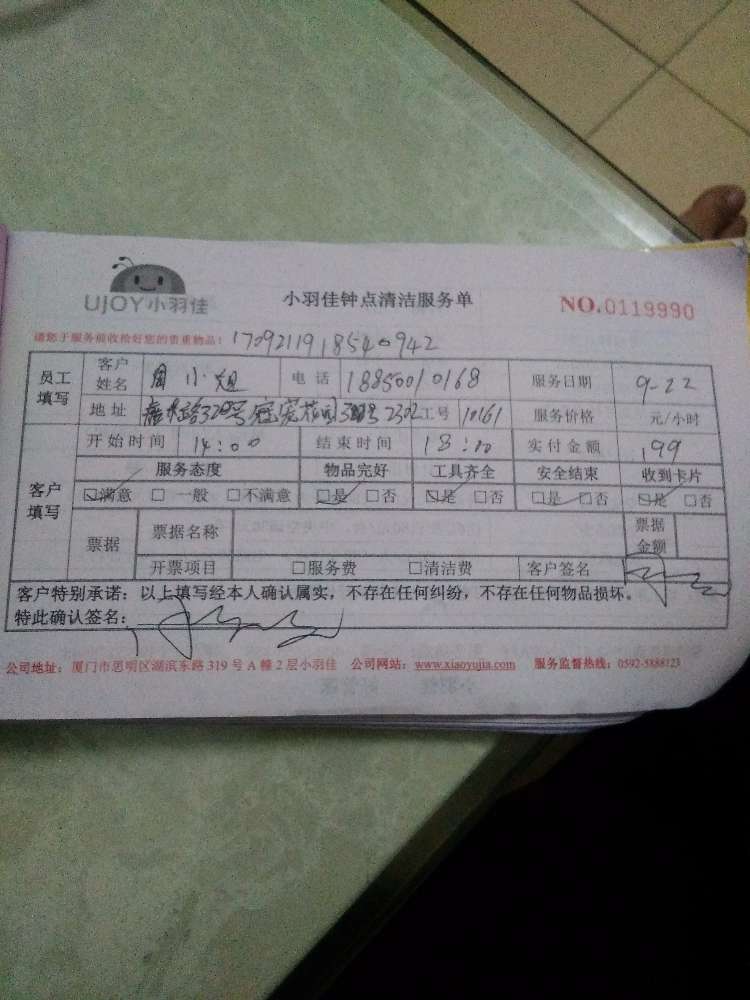 UJOY小羽佳 小羽佳钟点清洁服务单 NO.0119990
请您于服务前收拾好您的贵重物品：1709211918540942
员工填写 客户姓名 周小姐 电话 18850010168 服务日期 9-22
地址 320号 2302 工号 10161 服务价格 元/小时
客户填写 开始时间 14:00 结束时间 18:00 实付金额 199
服务态度 物品完好 工具齐全 安全结束 收到卡片
☑满意 □一般 □不满意 ☑是 □否 ☑是 □否 ☑是 □否 ☑是 □否
票据 票据名称 票据金额
开票项目 □服务费 □清洁费 客户签名
客户特别承诺：以上填写经本人确认属实，不存在任何纠纷，不存在任何物品损坏。
特此确认签名：
公司地址：厦门市思明区湖滨东路 319 号 A 幢 2 层小羽佳 公司网站：www.xiaoyujia.com 服务监督热线：0592-5888123